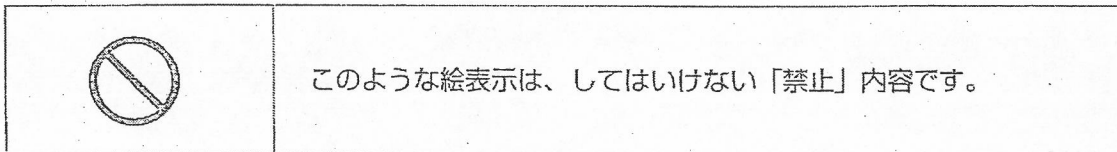 このような絵表示は、してはいけない「禁止」内容です。